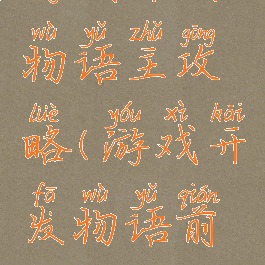 wù yǔ zhǔ gōng
物语主攻
lüè yóu xì kāi
略(游戏开
fā wù yǔ qián
发物语前